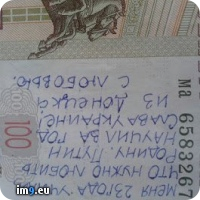 МЕНЯ 23 ГОДА УЧ
ЧТО НУЖНО ЛЮБИТЬ
РОДИНУ. ПУТИН
НАУЧИЛ ЗА ГОД
СЛАВА УКРАИНЕ!
ИЗ ДОНЕЦКА
С ЛЮБОВЬЮ.
ма 6583267
100
im9.eu